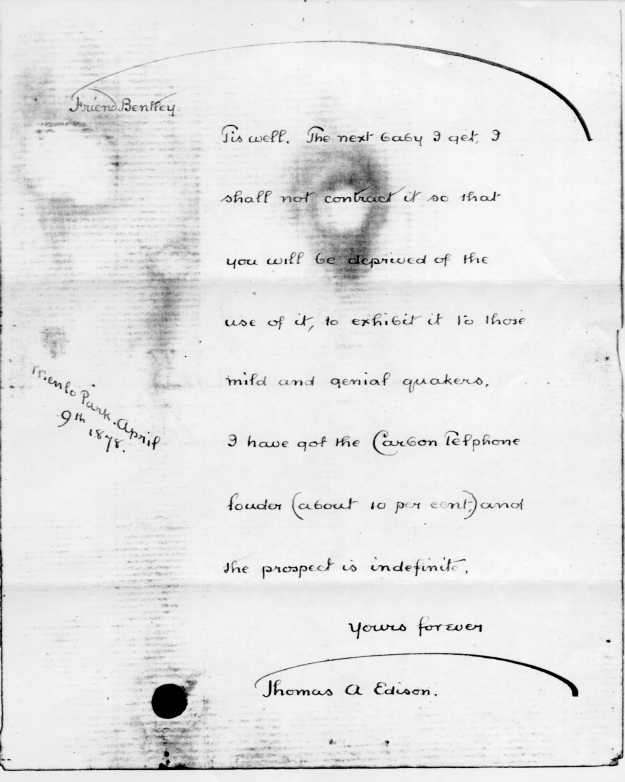 Friend Bentley.
Tis well. The next baby I get, I
shall not contract it so that
you will be deprived of the
use of it, to exhibit it to those
mild and genial quakers.
Menlo Park. April
9th 1878.
I have got the Carbon Telphone
louder (about 10 per cent,) and
the prospect is indefinite.
Yours forever
Thomas A Edison.